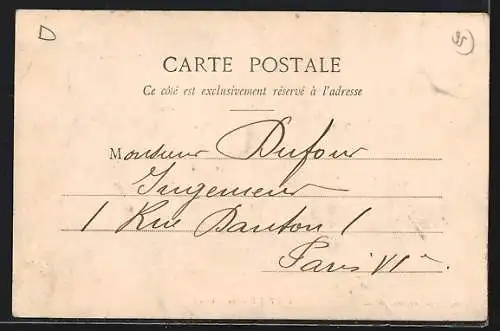 D
95
CARTE POSTALE
Ce côté est exclusivement réservé à l'adresse
Monsieur Dufour
Ingenieur
1 Rue Danton 1
Paris VIe.